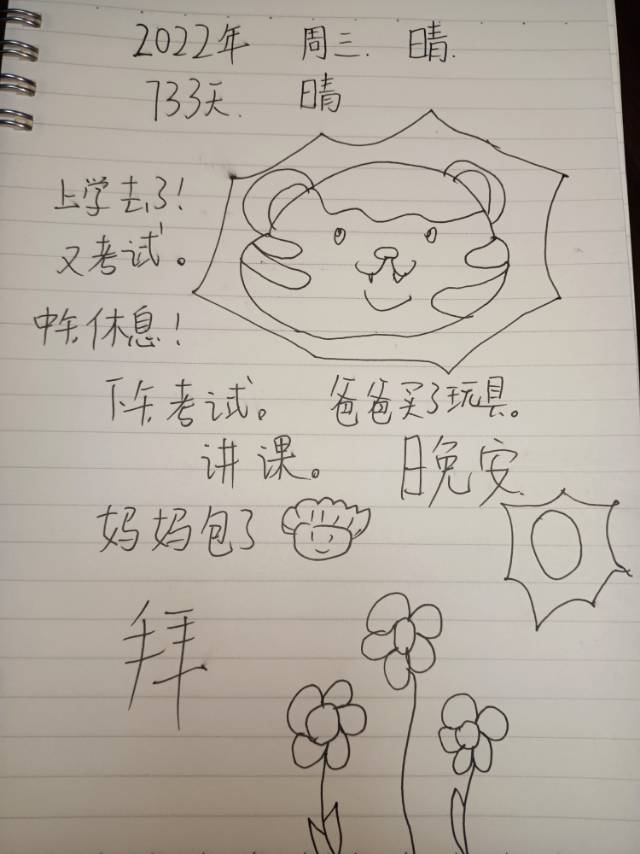 2022年 周三. 晴.
733天. 晴
上学去了!
又考试。
中午休息!
下午考试。 爸爸买了玩具。
讲课。 晚安
妈妈包了
拜